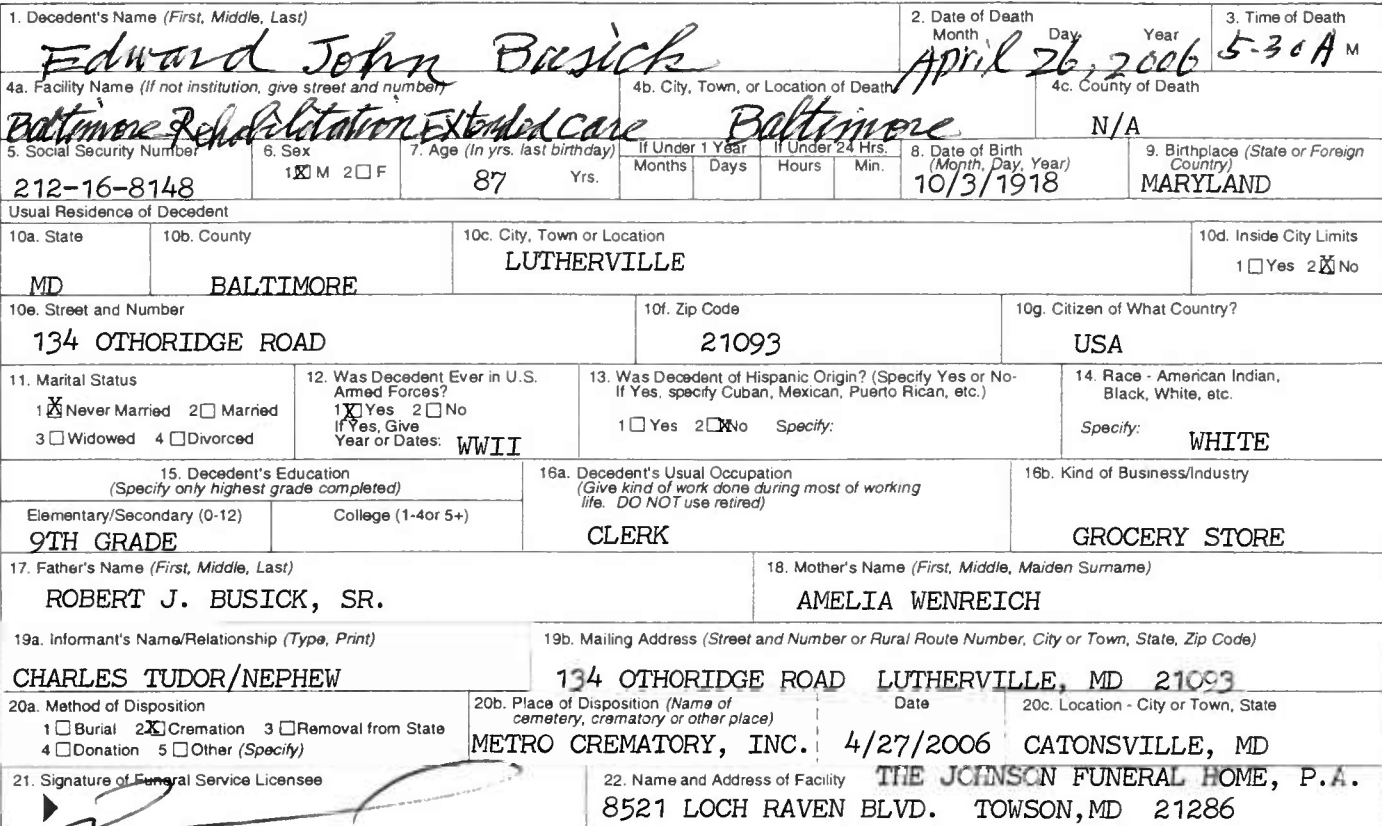 1. Decedent's Name (First, Middle, Last)
Edward John Busick
2. Date of Death
Month Day Year
April 26, 2006
3. Time of Death
5-30 A M
4a. Facility Name (If not institution, give street and number)
Baltimore Rehabilitation Extended Care
4b. City, Town, or Location of Death
Baltimore
4c. County of Death
N/A
5. Social Security Number
212-16-8148
6. Sex
1☒ M 2☐ F
7. Age (In yrs. last birthday)
87 Yrs.
If Under 1 Year
Months Days
If Under 24 Hrs.
Hours Min.
8. Date of Birth
(Month, Day, Year)
10/3/1918
9. Birthplace (State or Foreign
Country)
MARYLAND
Usual Residence of Decedent
10a. State
MD
10b. County
BALTIMORE
10c. City, Town or Location
LUTHERVILLE
10d. Inside City Limits
1 ☐ Yes 2 ☒ No
10e. Street and Number
134 OTHORIDGE ROAD
10f. Zip Code
21093
10g. Citizen of What Country?
USA
11. Marital Status
1 ☒ Never Married 2 ☐ Married
3 ☐ Widowed 4 ☐ Divorced
12. Was Decedent Ever in U.S.
Armed Forces?
1 ☒ Yes 2 ☐ No
If Yes, Give
Year or Dates: WWII
13. Was Decedent of Hispanic Origin? (Specify Yes or No-
If Yes, specify Cuban, Mexican, Puerto Rican, etc.)
1 ☐ Yes 2 ☒ No Specify:
14. Race - American Indian,
Black, White, etc.
Specify: WHITE
15. Decedent's Education
(Specify only highest grade completed)
Elementary/Secondary (0-12)
9TH GRADE
College (1-4or 5+)
16a. Decedent's Usual Occupation
(Give kind of work done during most of working
life. DO NOT use retired)
CLERK
16b. Kind of Business/Industry
GROCERY STORE
17. Father's Name (First, Middle, Last)
ROBERT J. BUSICK, SR.
18. Mother's Name (First, Middle, Maiden Surname)
AMELIA WENREICH
19a. Informant's Name/Relationship (Type, Print)
CHARLES TUDOR/NEPHEW
19b. Mailing Address (Street and Number or Rural Route Number, City or Town, State, Zip Code)
134 OTHORIDGE ROAD LUTHERVILLE, MD 21093
20a. Method of Disposition
1 ☐ Burial 2 ☒ Cremation 3 ☐ Removal from State
4 ☐ Donation 5 ☐ Other (Specify)
20b. Place of Disposition (Name of
cemetery, crematory or other place)
METRO CREMATORY, INC.
Date
4/27/2006
20c. Location - City or Town, State
CATONSVILLE, MD
21. Signature of Funeral Service Licensee
22. Name and Address of Facility THE JOHNSON FUNERAL HOME, P.A.
8521 LOCH RAVEN BLVD. TOWSON,MD 21286